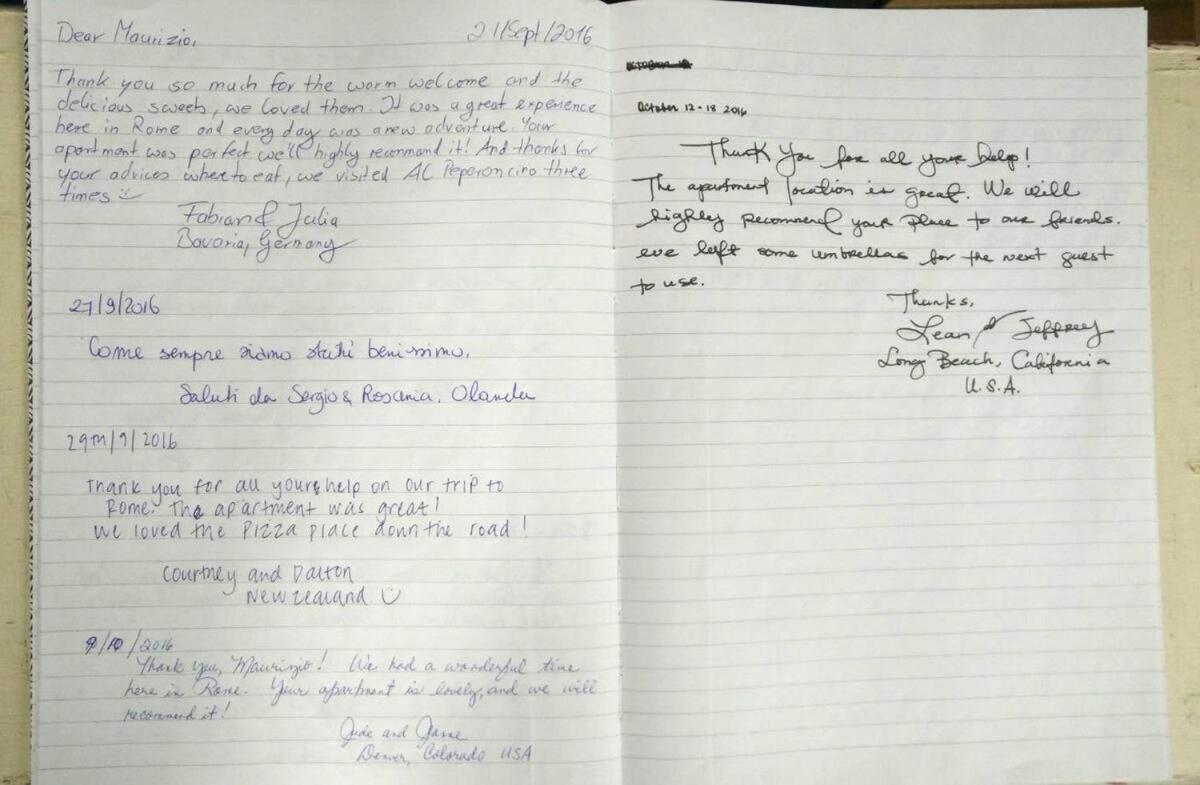 Dear Maurizio,
21/Sept/2016
Thank you so much for the warm welcome and the
delicious sweets, we loved them. It was a great experience
here in Rome and every day was a new adventure. Your
apartment was perfect we'll highly recommand it! And thanks for
your advices where to eat, we visited Al Peperoncino three
times
Fabian & Julia
Bavaria, Germany
27/9/2016
Come sempre siamo stati benissimo.
Saluti da Sergio & Rosania. Olanda
29TH/9/2016
Thank you for all your help on our trip to
Rome. The apartment was great!
We loved the pizza place down the road!
Courtney and Dalton
New Zealand
9/10/2016
Thank you, Maurizio! We had a wonderful time
here in Rome. Your apartment is lovely, and we will
recommend it!
and
Denver, Colorado USA
October 12-18 2016
Thank You for all your help!
The apartment location is great. We will
highly recommend your place to our friends.
We left some umbrellas for the next guest
to use.
Thanks,
Jeffrey
Long Beach, California
U.S.A.